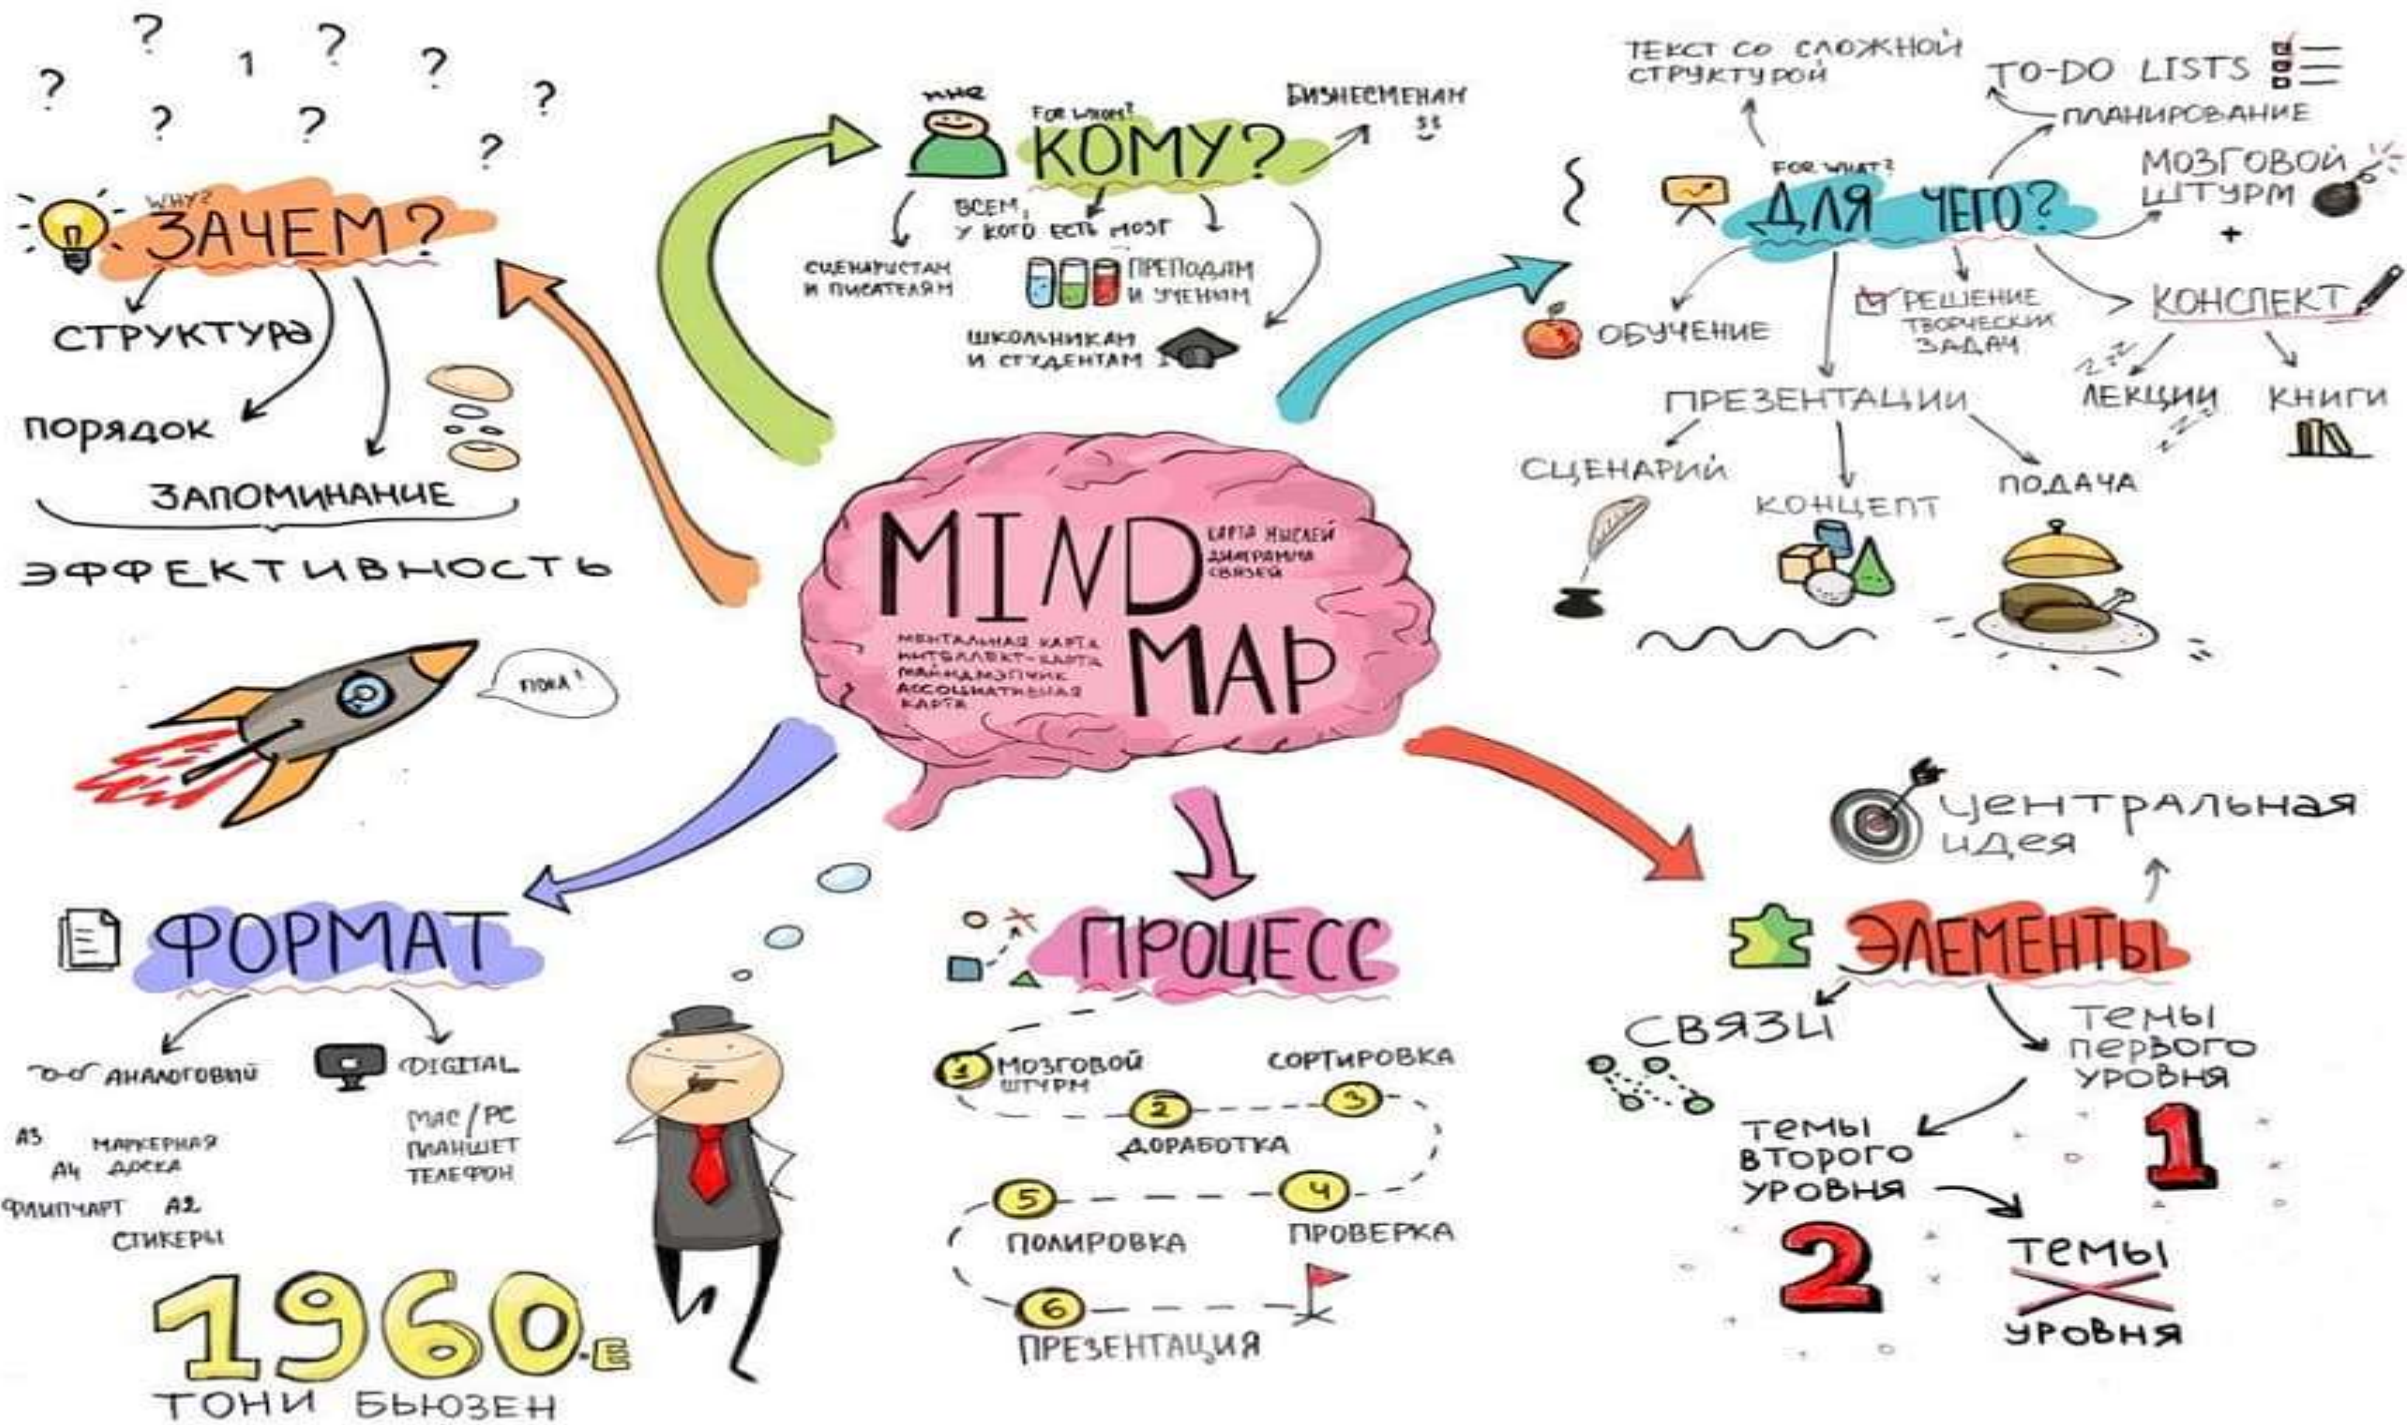 ? ? ? ? ? ? ? ?
1
WHY?
ЗАЧЕМ?
СТРУКТУРА
ПОРЯДОК
ЗАПОМИНАНИЕ
ЭФФЕКТИВНОСТЬ
ПОКА!
мне
FOR WHOM?
КОМУ?
БИЗНЕСМЕНАМ
$$
ВСЕМ,
У КОГО ЕСТЬ МОЗГ
СЦЕНАРИСТАМ
И ПИСАТЕЛЯМ
ПРЕПОДАМ
И УЧЕНЫМ
ШКОЛЬНИКАМ
И СТУДЕНТАМ
ТЕКСТ СО СЛОЖНОЙ
СТРУКТУРОЙ
TO-DO LISTS
ПЛАНИРОВАНИЕ
FOR WHAT?
ДЛЯ ЧЕГО?
МОЗГОВОЙ
ШТУРМ
+
КОНСПЕКТ
ОБУЧЕНИЕ
РЕШЕНИЕ
ТВОРЧЕСКИХ
ЗАДАЧ
ZZZ
ЛЕКЦИИ
ZZZ
КНИГИ
ПРЕЗЕНТАЦИИ
СЦЕНАРИЙ
КОНЦЕПТ
ПОДАЧА
MIND
КАРТА МЫСЛЕЙ
ДИАГРАММА
СВЯЗЕЙ
MAP
МЕНТАЛЬНАЯ КАРТА
ИНТЕЛЛЕКТ-КАРТА
МАЙНДМЭПЧИК
АССОЦИАТИВНАЯ
КАРТА
ФОРМАТ
АНАЛОГОВЫЙ
DIGITAL
A3 МАРКЕРНАЯ
A4 ДОСКА
ФЛИПЧАРТ A2
СТИКЕРЫ
MAC/PC
ПЛАНШЕТ
ТЕЛЕФОН
1960-Е
ТОНИ БЬЮЗЕН
ПРОЦЕСС
1
МОЗГОВОЙ
ШТУРМ
2
ДОРАБОТКА
СОРТИРОВКА
3
4
ПРОВЕРКА
5
ПОЛИРОВКА
6
ПРЕЗЕНТАЦИЯ
центральная
идея
ЭЛЕМЕНТЫ
СВЯЗИ
темы
первого
уровня
1
темы
второго
уровня
2
темы
X
уровня